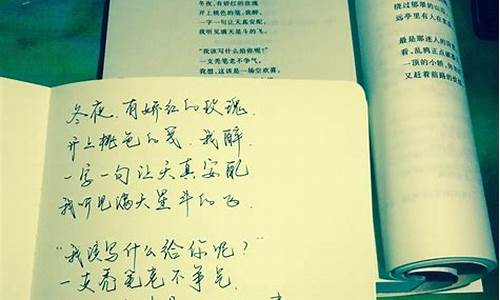 冬夜，有娇红的玫瑰
开上桃色的笺，我醉，
一字一句让天真安配，
我听见满天星斗的飞。
“我该写什么给你呢？”
一支秃笔老不争气，
我想，这该是一场空欢喜，
绕过郁郁的山
远亭里有人在
最是那迷人的
看，乱鸦正点
一顶的小轿，
又赶着前路的
冬夜，有娇红的玫瑰，
开上桃色的笺，我醉，
一字一句让天真安配
我听见满天星斗的飞。
“我该写什么给你呢？”
一支秃笔老不争气，